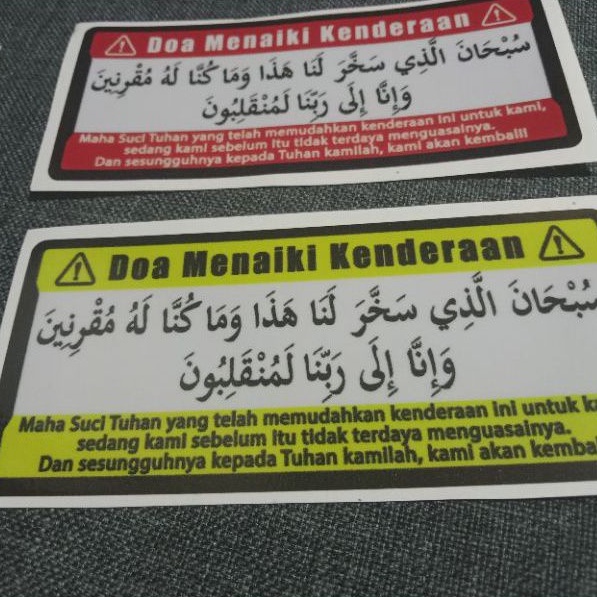 Doa Menaiki Kenderaan
سُبْحَانَ الَّذِي سَخَّرَ لَنَا هَذَا وَمَا كُنَّا لَهُ مُقْرِنِينَ
وَإِنَّا إِلَى رَبِّنَا لَمُنْقَلِبُونَ
Maha Suci Tuhan yang telah memudahkan kenderaan ini untuk kami,
sedang kami sebelum itu tidak terdaya menguasainya.
Dan sesungguhnya kepada Tuhan kamilah, kami akan kembali!
Doa Menaiki Kenderaan
سُبْحَانَ الَّذِي سَخَّرَ لَنَا هَذَا وَمَا كُنَّا لَهُ مُقْرِنِينَ
وَإِنَّا إِلَى رَبِّنَا لَمُنْقَلِبُونَ
Maha Suci Tuhan yang telah memudahkan kenderaan ini untuk
sedang kami sebelum itu tidak terdaya menguasainya.
Dan sesungguhnya kepada Tuhan kamilah, kami akan